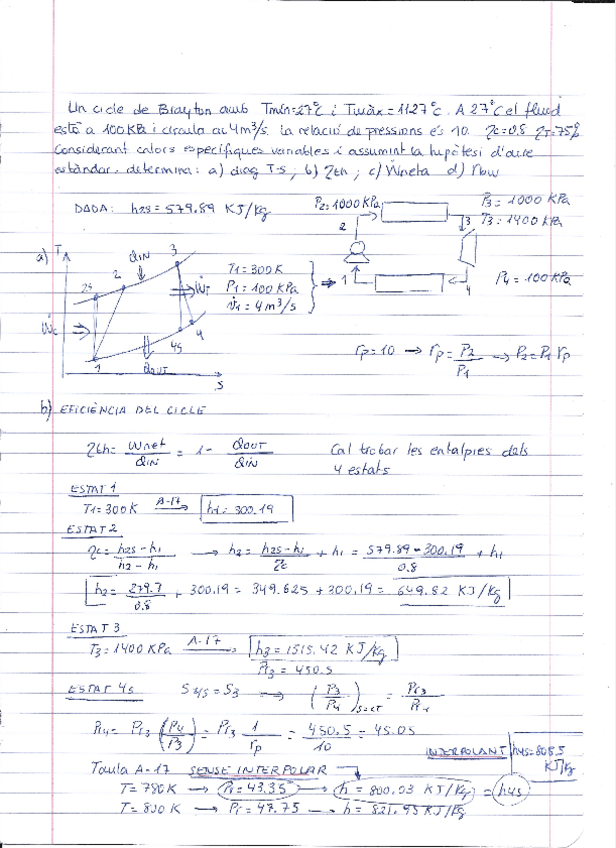 Un cicle de Brayton amb Tmín=27°C i Tmàx=1127°C. A 27°C el fluid
està a 100KPa i circula a 4m³/s. La relació de pressions és 10. ηc=0,8 ηT=75%
Considerant calors específiques variables i assumint la hipòtesi d'aire
estàndar, determina: a) diag T-s, b) ηth, c) Wneta d)
DADA: h2s = 579.89 KJ/Kg
P2=1000KPa
P3 = 1000 KPa
T3 = 1400 KPa
2
3
1
4
P4 = 100KPa
a) T
QIN
3
2
2s
ẆT
Ẇc
4s
4
1
QOUT
S
T1=300K
P1=100KPa
V̇1=4m³/s
rp=10 → rp=P2/P1 → P2=P1 rp
b) EFICIÈNCIA DEL CICLE
ηth = Wnet/QIN = 1- QOUT/QIN
Cal trobar les entalpies dels
4 estats
ESTAT 1
T1=300K A-17→ h1=300.19
ESTAT 2
ηc = h2s-h1/h2-h1 → h2 = h2s-h1/ηc + h1 = 579.89-300.19/0.8 + h1
h2 = 279.7/0.8 + 300.19 = 349.625 + 300.19 = 649.82 KJ/Kg
ESTAT 3
T3=1400KPa A-17→ h3=1515.42 KJ/Kg
Pr3 = 450.5
ESTAT 4s S4s = S3 → (P3/P4)s=ct = Pr3/Pr4
Pr4 = Pr3 (P4/P3) = Pr3 1/rp = 450.5/10 = 45.05
INTERPOLANT h4s=805.5 KJ/Kg
Taula A-17 SENSE INTERPOLAR
T=780K → Pr=43.35 → h = 800.03 KJ/Kg = h4s
T=800K → Pr=47.75 → h = 821.95 KJ/Kg